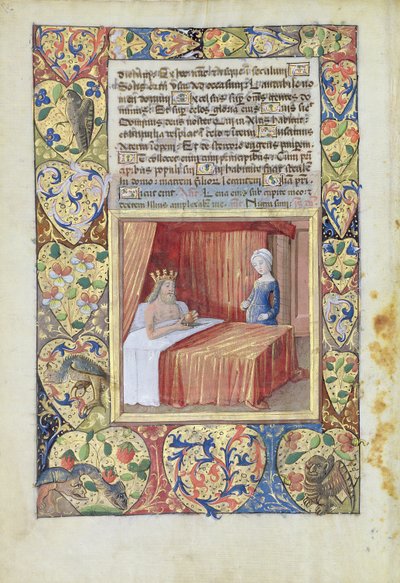 Solis ortu usq ad occasum: laudabile no
men domini Excelsus sup oms gentes do
minus: Et sup celos gloria eius Quis sic
Dominus deus noster qui in altis habitat:
et humilia respicit in celo et in terra Suscitans
A terra inopem: Et de stercore erigens paupem
Ut collocet eum cum principibus: Cum pn
cipibus populi sui Qui habitare facit sterile
in domo: matrem filiorum letantem Glia pri
Sicut erat Leva eius sub capite meo:
et dextera illius amplexabit me: Nigra sum